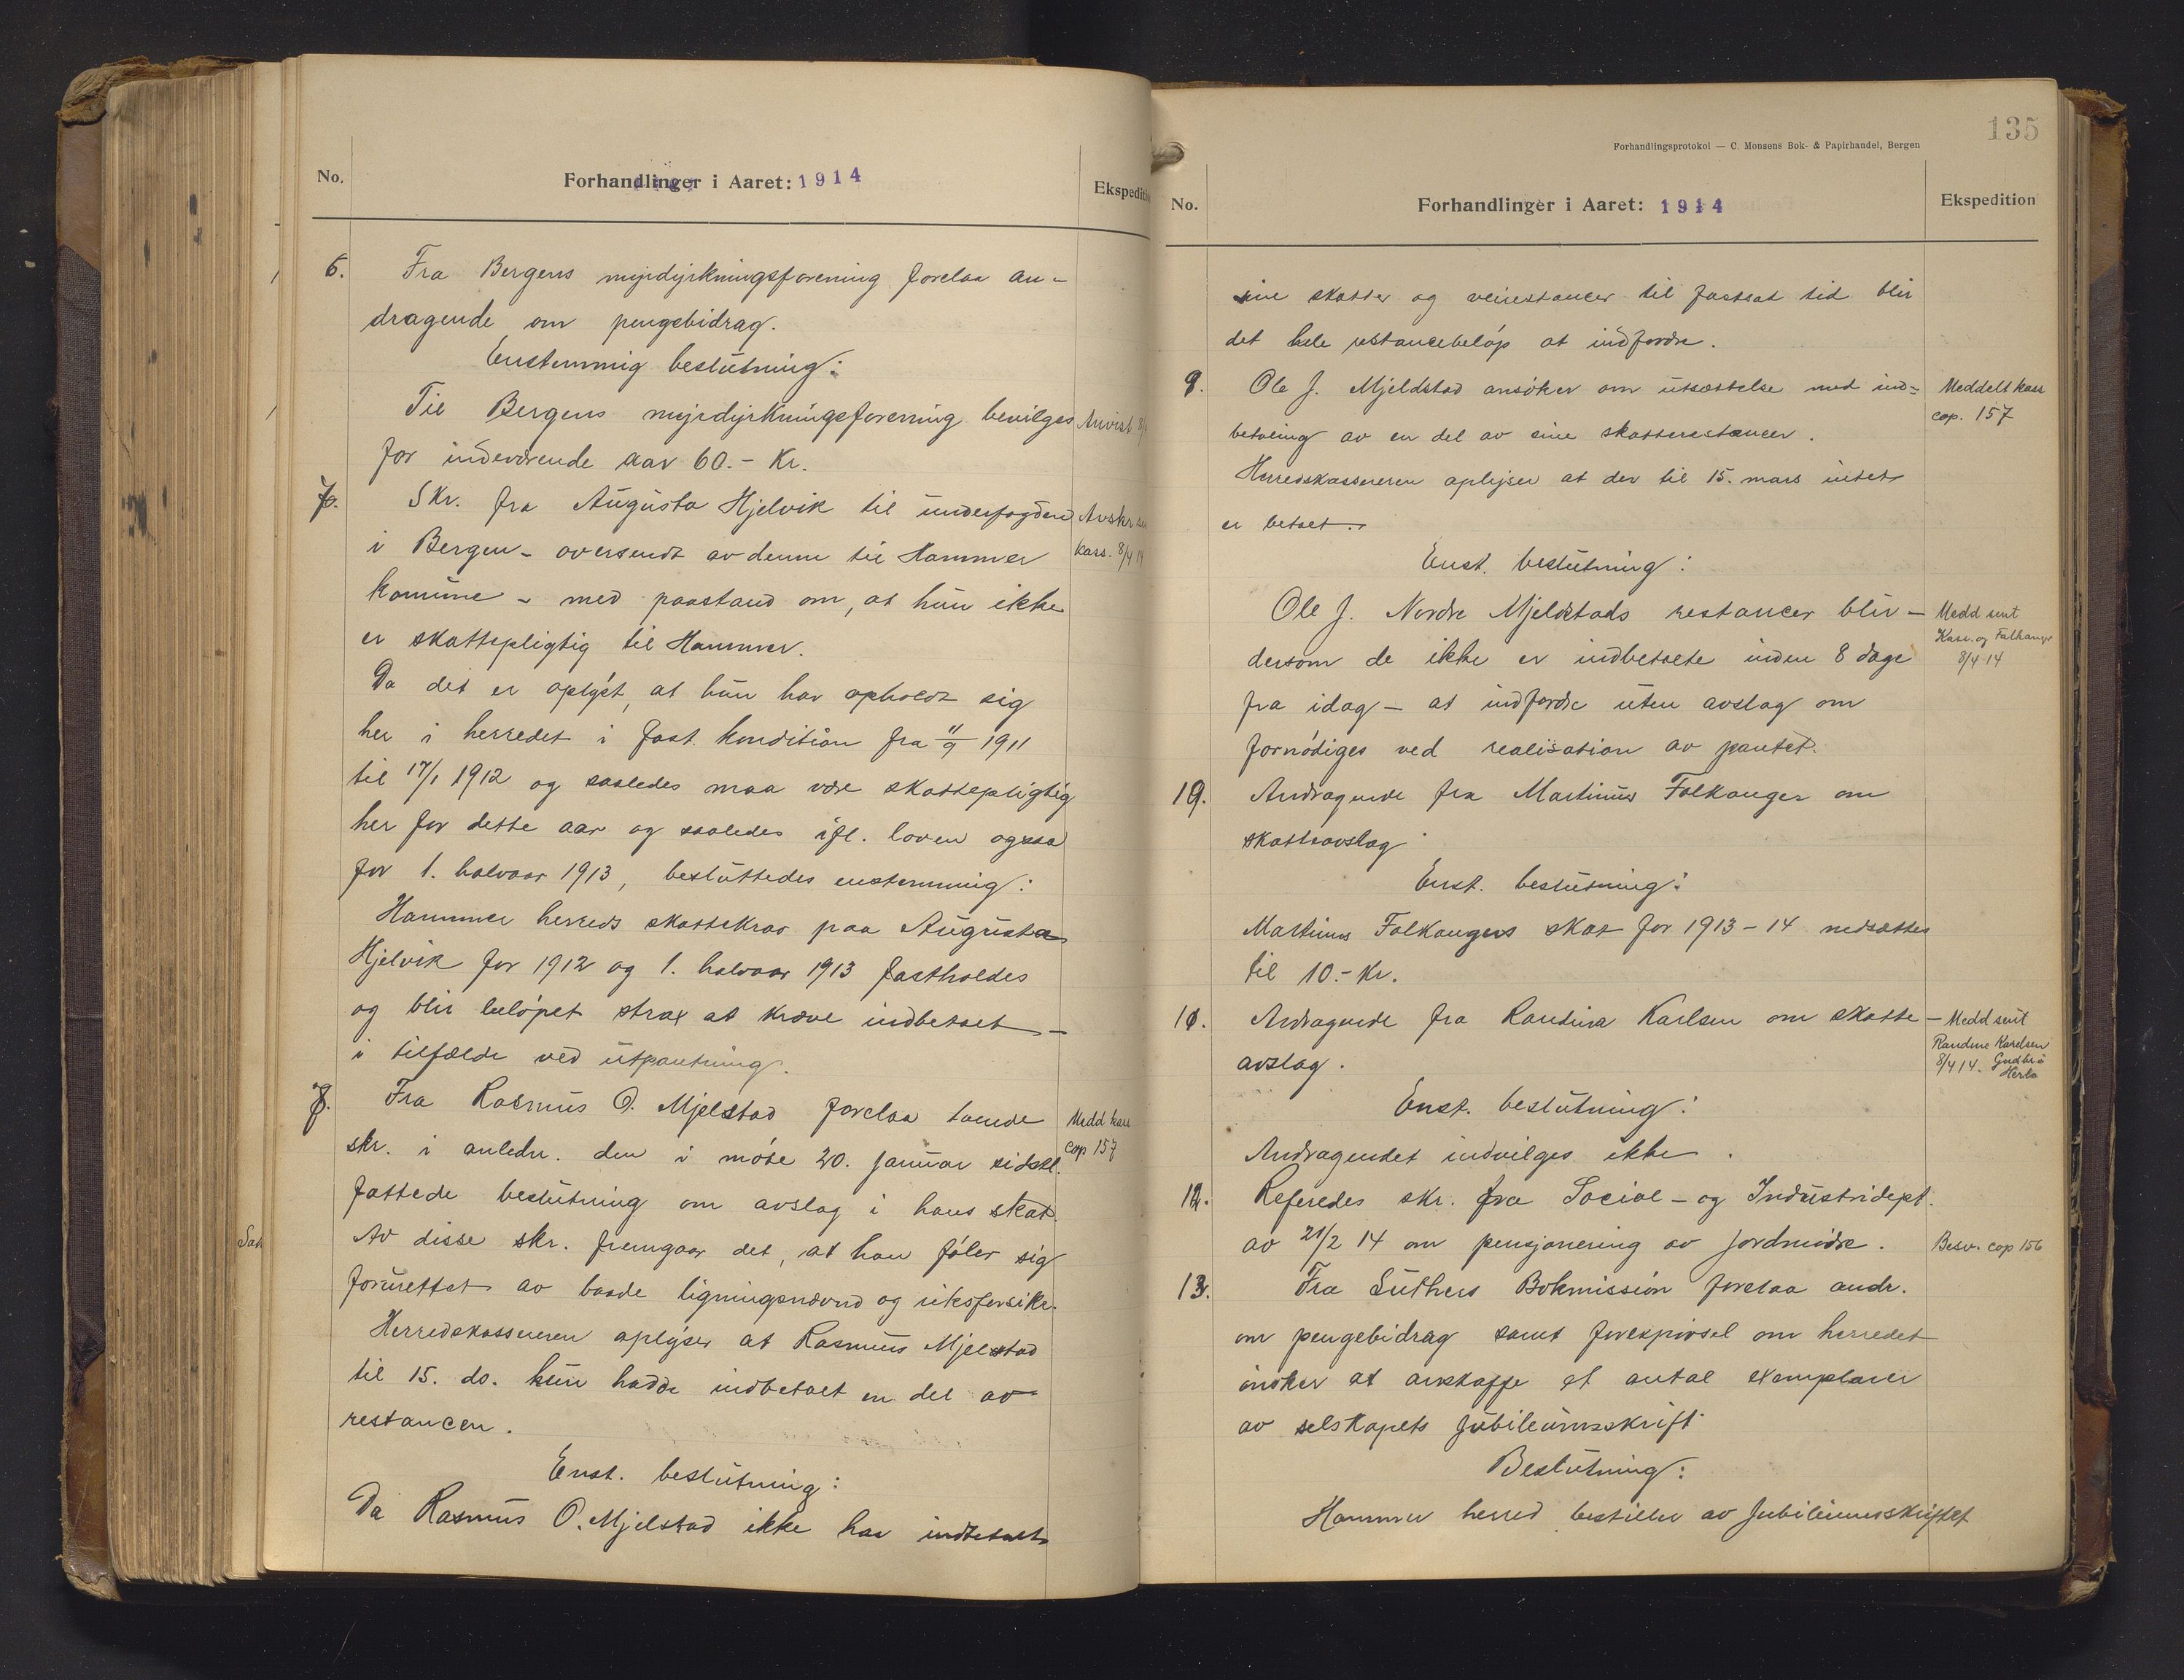 No.
Forhandlinger i Aaret: 1914
Ekspedition
6. Fra Bergens myrdyrkningsforening forelaa an-
dragende om pengebidrag.
Enstemmig beslutning:
Til Bergens myrdyrkningsforening bevilges
for indeværende aar 60.- Kr.
Anvist 8/4
7. Skr. fra Augusta Hjelvik til underfogden
i Bergen - oversendt av denne til Hammer
komune - med paastand om, at hun ikke
er skattepligtig til Hammer.
Avskr
kass. 8/4 14
Da det er oplyst, at hun har opholdt sig
her i herredet i fast kondition fra 11/9 1911
til 17/1 1912 og saaledes maa være skattepligtig
her for dette aar og saaledes ifl. loven ogsaa
for 1. halvaar 1913, besluttedes enstemmig:
Hammer herreds skattekrav paa Augusta
Hjelvik for 1912 og 1. halvaar 1913 fastholdes
og blir beløpet strax at kræve indbetalt -
i tilfælde ved utpantning.
8. Fra Rasmus O. Mjelstad forelaa tvende
skr. i anledn. den i møte 20. januar sidstl.
fattede beslutning om avslag i hans skat.
Medd kass
cop 157
Av disse skr. fremgaar det, at han føler sig
forurettet av baade ligningsnævnd og riksforsikr.
Herredskassereren oplyser at Rasmus Mjelstad
til 15. ds. kun hadde indbetalt en del av
restancen.
Enst. beslutning:
Da Rasmus O. Mjelstad ikke har indbetalt
135
Forhandlingsprotokol — C. Monsens Bok- & Papirhandel, Bergen
No.
Forhandlinger i Aaret: 1914
Ekspedition
sine skatter og veirestancer til fastsat tid blir
det hele restancebeløp at indfordre.
9. Ole J. Mjeldstad ansøker om utsættelse med ind=
betaling av en del av sine skatterestancer.
Meddelt kass
cop. 157
Herredskassereren oplyser at der til 15. mars intet
er betalt.
Enst. beslutning:
Ole J. Nordre Mjeldstads restancer blir -
dersom de ikke er indbetalte inden 8 dage
fra idag - at indfordre uten avslag om
fornødiges ved realisation av pantet.
Medd sent
Kass. og Falkanger
8/4 14
10. Andragende fra Martinus Falkanger om
skatteavslag
Enst. beslutning:
Martinus Falkangers skat for 1913-14 nedsættes
til 10.- Kr.
11. Andragende fra Randina Karlsen om skatte-
avslag.
Medd sent
Randine Karelsen
8/4 14.
Herlø
Enst. beslutning:
Andragendet indvilges ikke.
12. Referedes skr. fra Social- og Industridept.
av 21/2 14 om pensjonering av jordmødre.
Besv. cop 156
13. Fra Luthers Bokmission forelaa andr.
om pengebidrag samt forespørsel om herredet
ønsker at anskaffe et antal exemplarer
av selskapets jubileumsskrift
Beslutning:
Hammer herred bestiller av Jubileumsskriftet